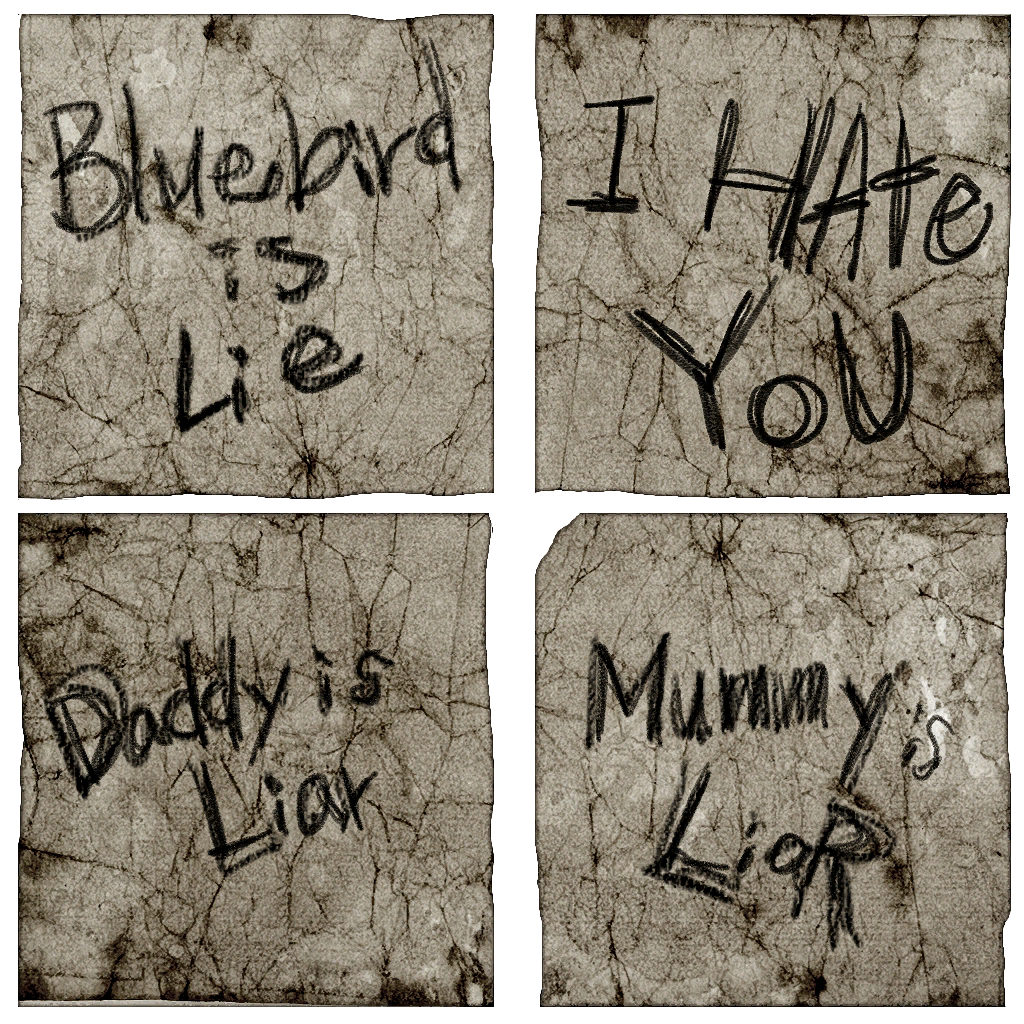 Bluebird
is
Lie
I HAte
YoU
Daddy is
Liar
Mummy is
LiaR